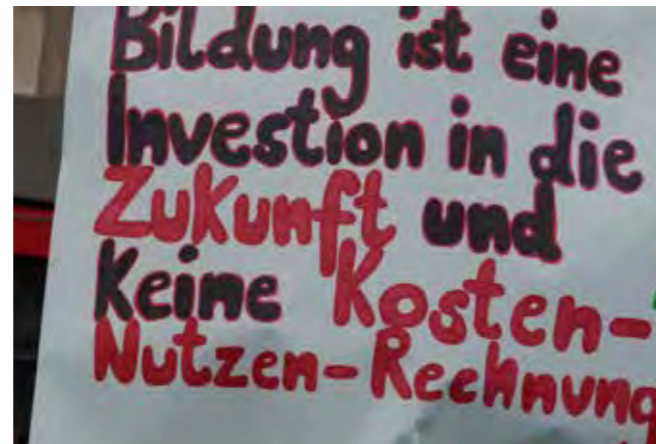 Bildung ist eine
Investion in die
Zukunft und
Keine Kosten-
Nutzen-Rechnung